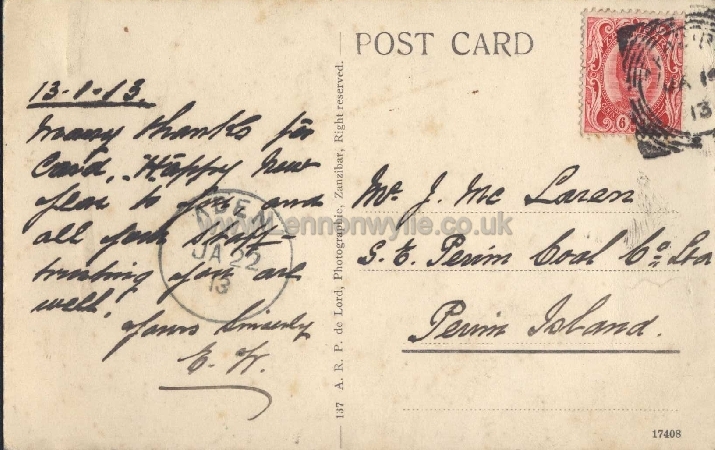 POST CARD
13-1-13.
Many thanks for
Card, Happy New
Year to you and
all your staff
trusting you are
well.
Yours Sincerely
ADEN
JA 22
13
137 A. R. P. de Lord, Photographic, Zanzibar, Right reserved.
6
JA
13
Mr. J. Mc Laren
S. E. Perim Coal Co. Ltd
Perim Island.
17408
www.lennonwylie.co.uk